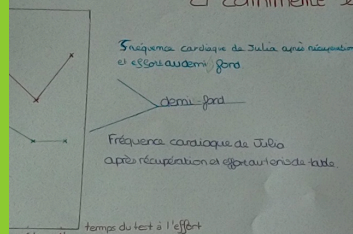 comment
Fréquence cardiaque de Julia après récupération
et effort au demi fond
demi-fond
Fréquence cardiaque de Julia
après récupération et effort au tennis de table
temps du test à l'effort